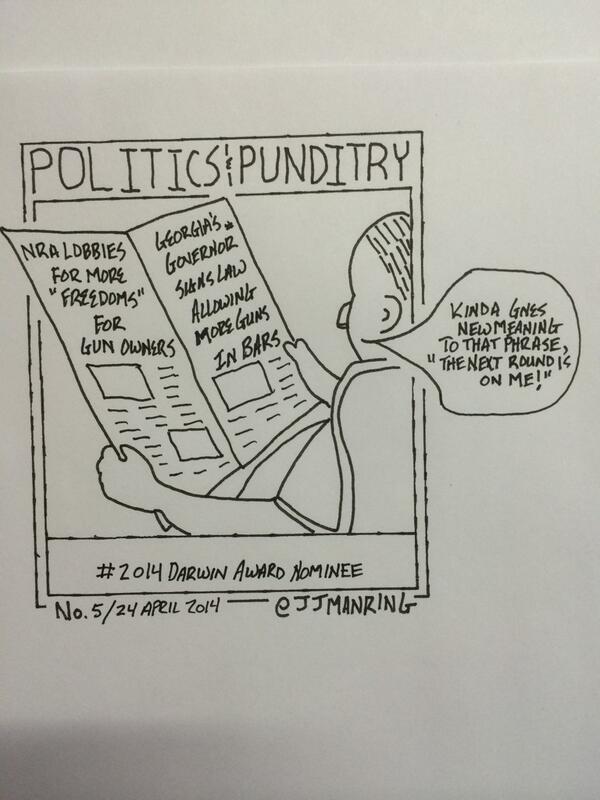 POLITICS & PUNDITRY
NRA LOBBIES
FOR MORE
"FREEDOMS"
FOR
GUN OWNERS
GEORGIA'S
GOVERNOR
SIGNS LAW
ALLOWING
MORE GUNS
IN BARS
KINDA GIVES
NEW MEANING
TO THAT PHRASE,
"THE NEXT ROUND IS
ON ME!"
#2014 DARWIN AWARD NOMINEE
No. 5/24 APRIL 2014
@JJMANRING